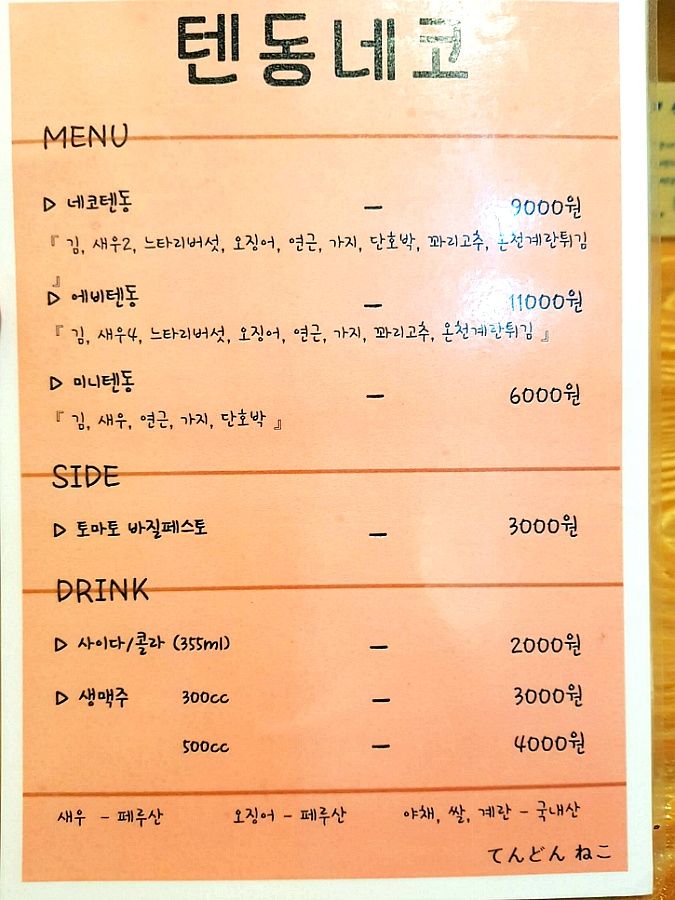 텐동네코
MENU
▷ 네코텐동 — 9000원
『 김, 새우2, 느타리버섯, 오징어, 연근, 가지, 단호박, 꽈리고추, 온천계란튀김
』
▷ 에비텐동 — 11000원
『 김, 새우4, 느타리버섯, 오징어, 연근, 가지, 꽈리고추, 온천계란튀김 』
▷ 미니텐동 — 6000원
『 김, 새우, 연근, 가지, 단호박 』
SIDE
▷ 토마토 바질페스토 — 3000원
DRINK
▷ 사이다/콜라 (355ml) — 2000원
▷ 생맥주 300cc — 3000원
500cc — 4000원
새우 - 페루산 오징어 - 페루산 야채, 쌀, 계란 - 국내산
てんどん ねこ